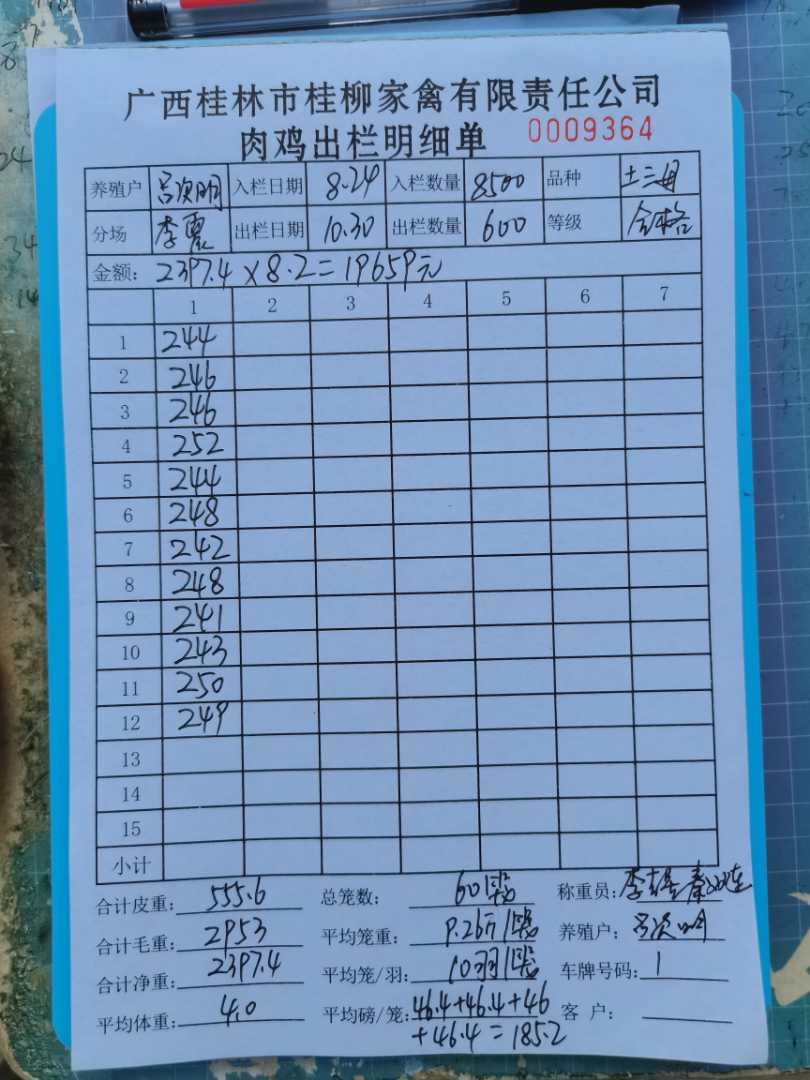 广西桂林市桂柳家禽有限责任公司
肉鸡出栏明细单 0009364
养殖户 吕次明 入栏日期 8.24 入栏数量 8500 品种 土三月
分场 李震 出栏日期 10.30 出栏数量 600 等级 合格
金额: 2397.4 × 8.2 = 19659元
1 2 3 4 5 6 7
1 244
2 246
3 246
4 252
5 244
6 248
7 242
8 248
9 241
10 243
11 250
12 249
13
14
15
小计
合计皮重: 555.6 总笼数: 60 称重员: 李
合计毛重: 2953 平均笼重: 9.26 养殖户: 吕次明
合计净重: 2397.4 平均笼/羽: 10羽 车牌号码: 1
平均体重: 4.0 平均磅/笼: 46.4+46.4+46 客 户:
+46.4=185.2